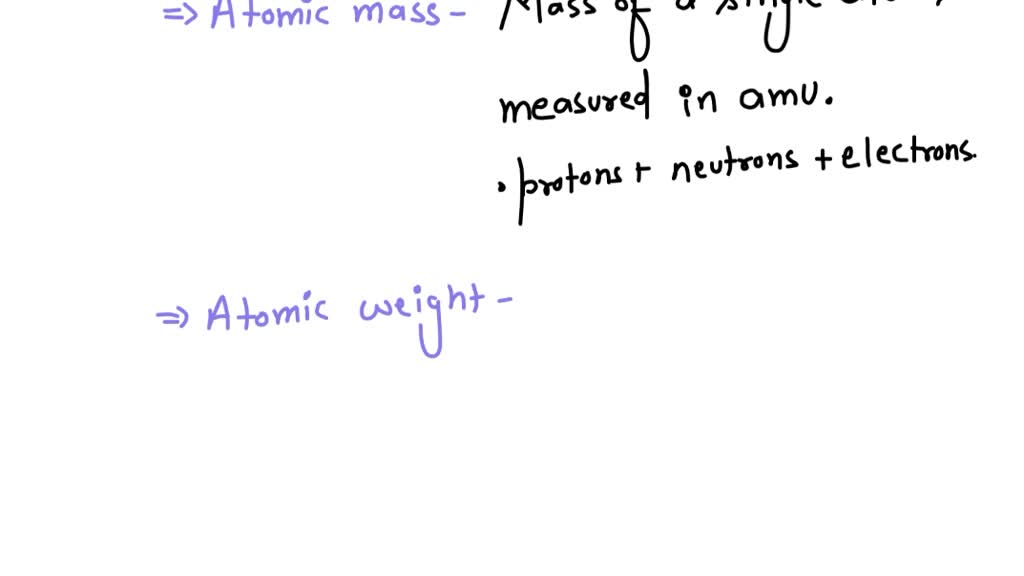 ⇒ Atomic mass - Mass of a single
measured in amu.
• protons + neutrons + electrons.
⇒ Atomic weight -